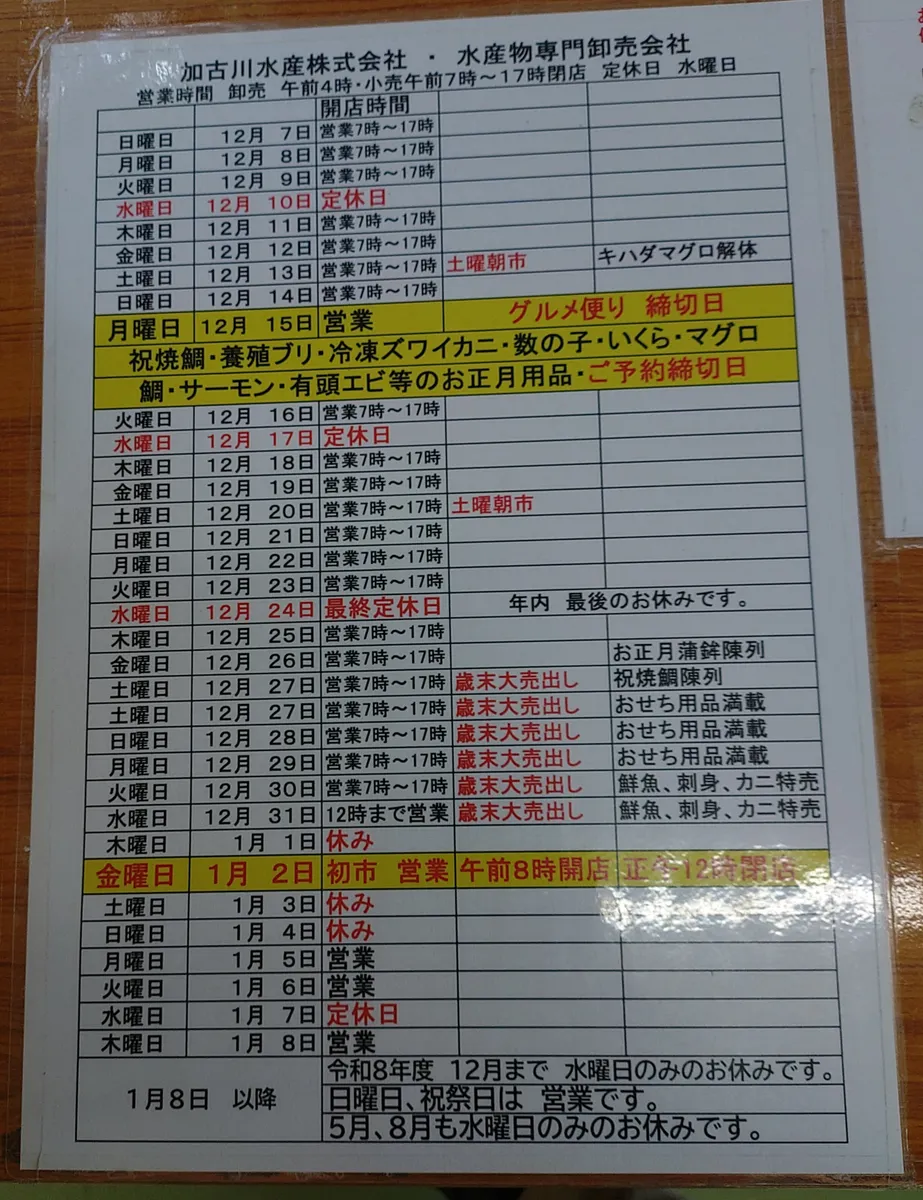 加古川水産株式会社 ・ 水産物専門卸売会社
営業時間 卸売 午前4時・小売午前7時～17時閉店 定休日 水曜日
開店時間
日曜日 12月 7日 営業7時～17時
月曜日 12月 8日 営業7時～17時
火曜日 12月 9日 営業7時～17時
水曜日 12月 10日 定休日
木曜日 12月 11日 営業7時～17時
金曜日 12月 12日 営業7時～17時
土曜日 12月 13日 営業7時～17時 土曜朝市 キハダマグロ解体
日曜日 12月 14日 営業7時～17時
月曜日 12月 15日 営業 グルメ便り 締切日
祝焼鯛・養殖ブリ・冷凍ズワイカニ・数の子・いくら・マグロ
鯛・サーモン・有頭エビ等のお正月用品・ご予約締切日
火曜日 12月 16日 営業7時～17時
水曜日 12月 17日 定休日
木曜日 12月 18日 営業7時～17時
金曜日 12月 19日 営業7時～17時
土曜日 12月 20日 営業7時～17時 土曜朝市
日曜日 12月 21日 営業7時～17時
月曜日 12月 22日 営業7時～17時
火曜日 12月 23日 営業7時～17時
水曜日 12月 24日 最終定休日 年内 最後のお休みです。
木曜日 12月 25日 営業7時～17時
金曜日 12月 26日 営業7時～17時 お正月蒲鉾陳列
土曜日 12月 27日 営業7時～17時 歳末大売出し 祝焼鯛陳列
土曜日 12月 27日 営業7時～17時 歳末大売出し おせち用品満載
日曜日 12月 28日 営業7時～17時 歳末大売出し おせち用品満載
月曜日 12月 29日 営業7時～17時 歳末大売出し おせち用品満載
火曜日 12月 30日 営業7時～17時 歳末大売出し 鮮魚、刺身、カニ特売
水曜日 12月 31日 12時まで営業 歳末大売出し 鮮魚、刺身、カニ特売
木曜日 1月 1日 休み
金曜日 1月 2日 初市 営業 午前8時開店 正午12時閉店
土曜日 1月 3日 休み
日曜日 1月 4日 休み
月曜日 1月 5日 営業
火曜日 1月 6日 営業
水曜日 1月 7日 定休日
木曜日 1月 8日 営業
1月8日 以降 令和8年度 12月まで 水曜日のみのお休みです。
日曜日、祝祭日は 営業です。
5月、8月も水曜日のみのお休みです。